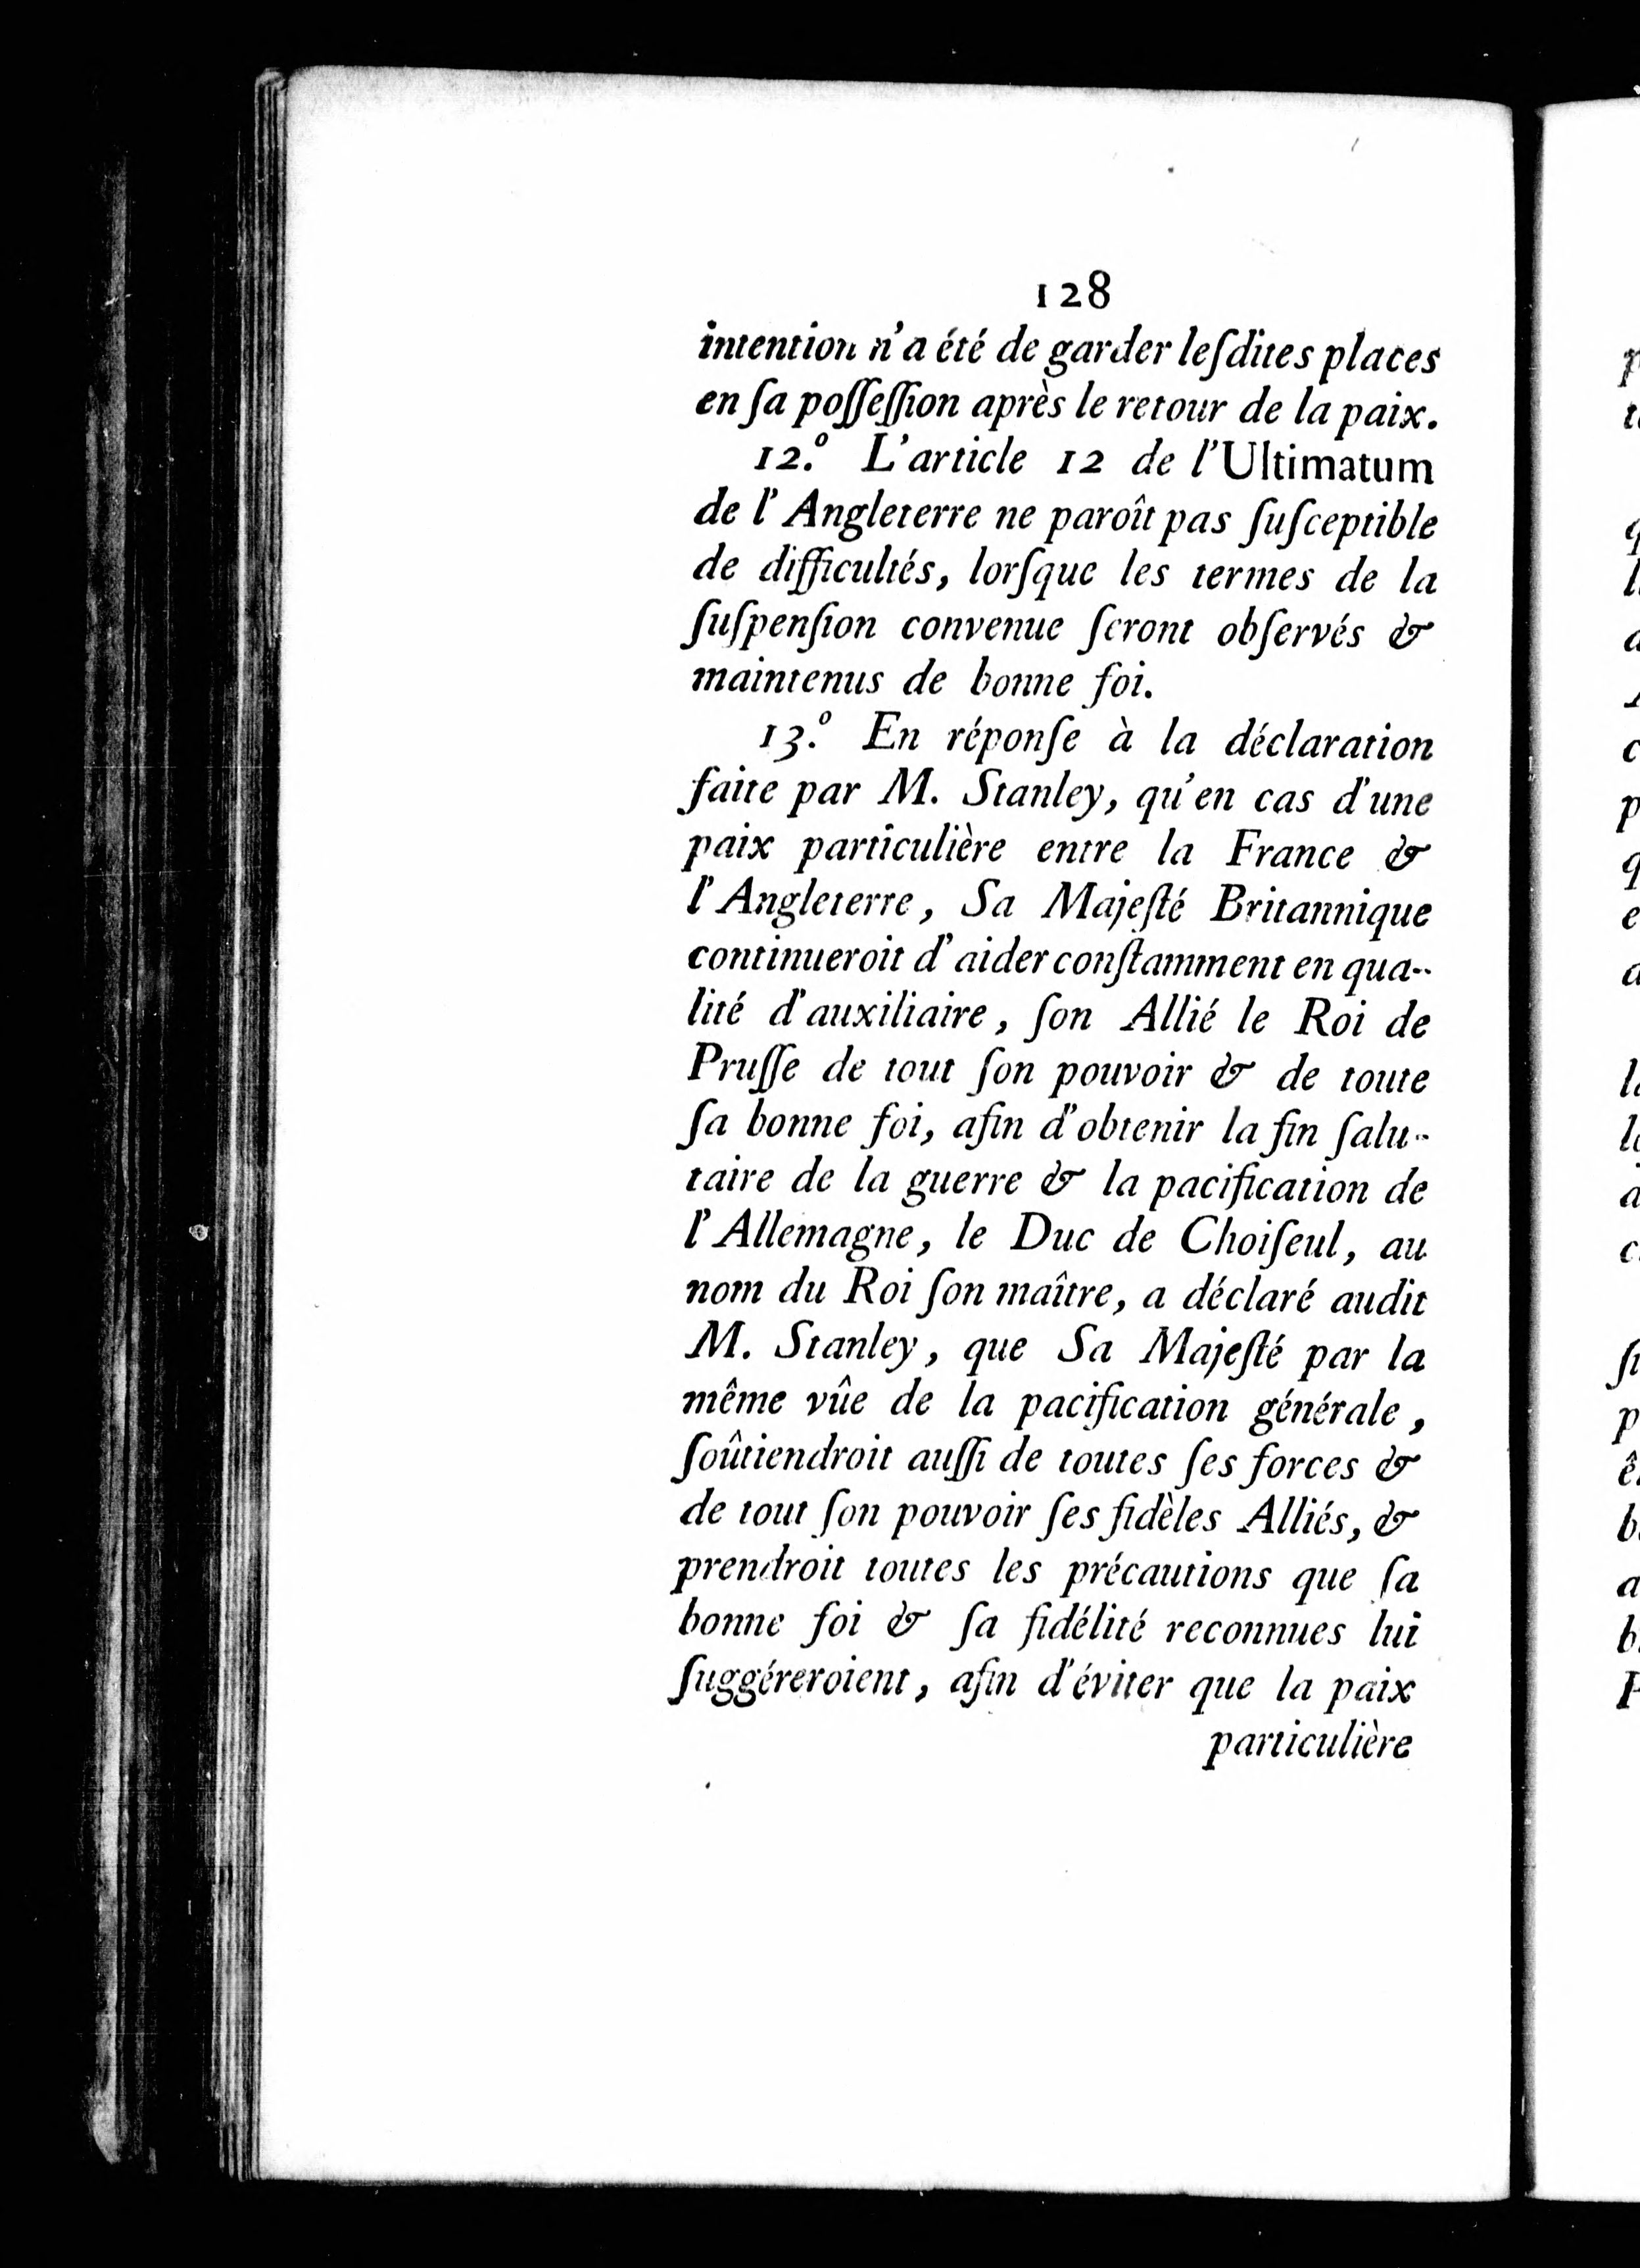 128
intention n'a été de garder leſdites places
en ſa poſſeſſion après le retour de la paix.
12.° L'article 12 de l'Ultimatum
de l'Angleterre ne paroît pas ſuſceptible
de difficultés, lorſque les termes de la
ſuſpenſion convenue ſeront obſervés &
maintenus de bonne foi.
13.° En réponſe à la déclaration
faite par M. Stanley, qu'en cas d'une
paix particulière entre la France &
l'Angleterre, Sa Majeſté Britannique
continueroit d'aider conſtamment en qua-
lité d'auxiliaire, ſon Allié le Roi de
Pruſſe de tout ſon pouvoir & de toute
ſa bonne foi, afin d'obtenir la fin ſalu-
taire de la guerre & la pacification de
l'Allemagne, le Duc de Choiſeul, au
nom du Roi ſon maître, a déclaré audit
M. Stanley, que Sa Majeſté par la
même vûe de la pacification générale,
ſoûtiendroit auſſi de toutes ſes forces &
de tout ſon pouvoir ſes fidèles Alliés, &
prendroit toutes les précautions que ſa
bonne foi & ſa fidélité reconnues lui
ſuggéreroient, afin d'éviter que la paix
particulière